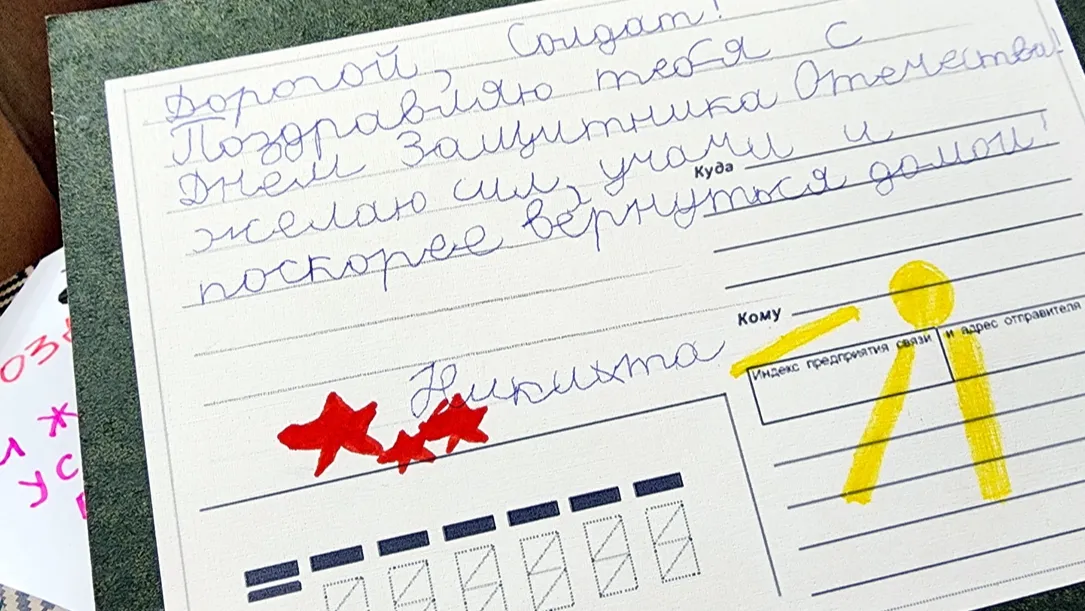 Дорогой, Солдат!
Поздравляю тебя с
Днем Защитника Отечества!
желаю сил, учами и
поскорее вернуться домой!
Никихта
Куда
Кому
Индекс предприятия связи и адрес отправителя